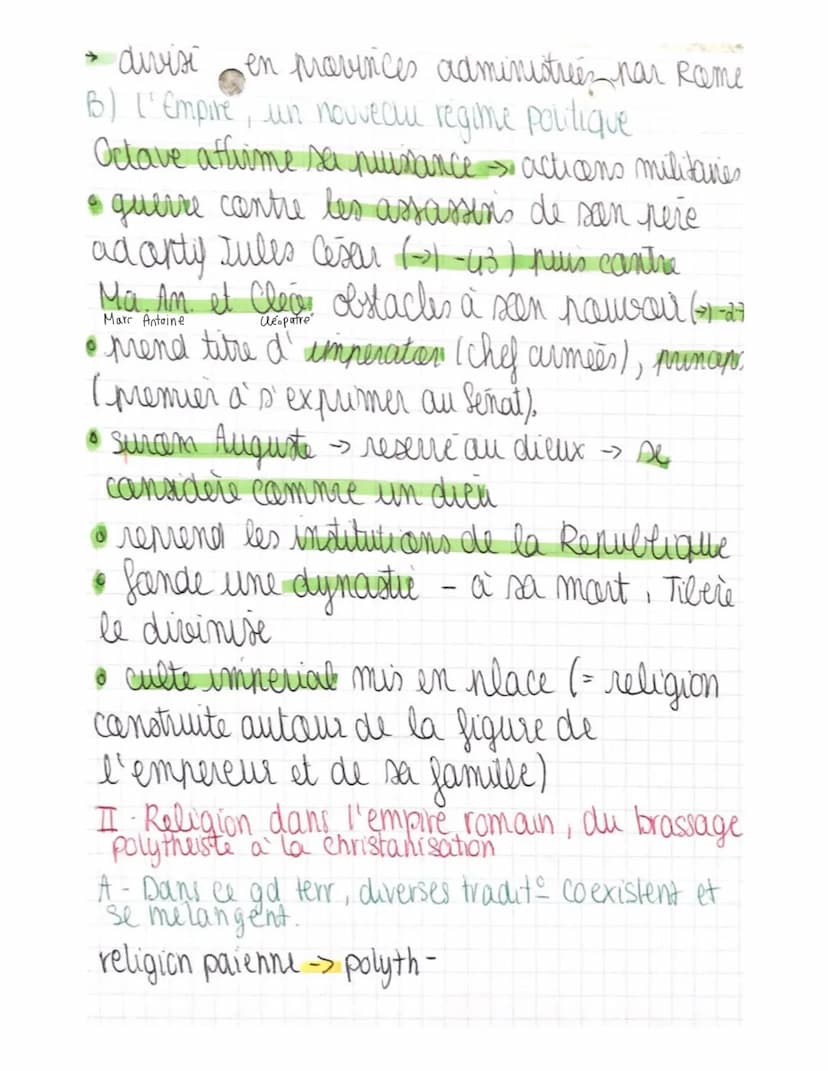 → divisé en provinces administrées par Rome
B) L'Empire, un nouveau régime politique
Octave affirme sa puissance → actions militaires
• guerre contre les assassins de son père
adoptif Jules César (→) -43) puis contre
Ma. An. et Cléo. obstacles à son pouvoir (→) -27
Marc Antoine Cléopatre
• prend titre d'imperator (chef armées), princeps
(premier à s'exprimer au Sénat).
• surnom Auguste → reservé au dieux → se
considère comme un dieu
• reprend les institutions de la Republique
• fonde une dynastie - à sa mort, Tibère
le divinise
• culte imperial mis en place (= religion
construite autour de la figure de
l'empereur et de sa famille)
II - Religion dans l'empire romain, du brassage
polytheiste à la christanisation
A - Dans ce gd terr, diverses tradit° coexistent et
se melangent.
religion païenne → polyth -